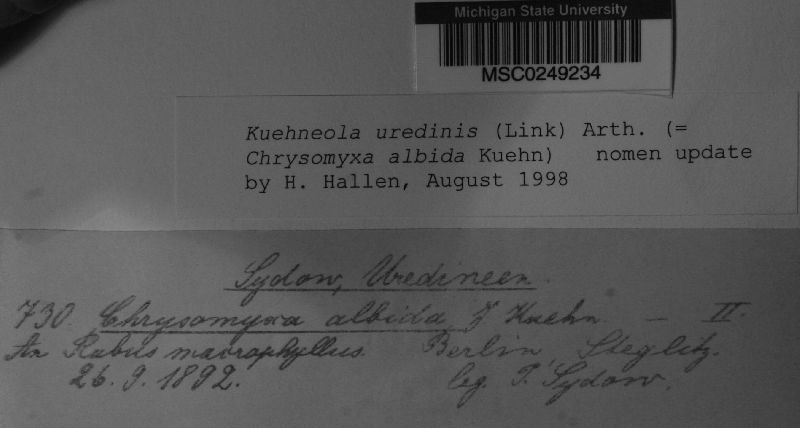 Michigan State University
MSC0249234
Kuehneola uredinis (Link) Arth. (=
Chrysomyxa albida Kuehn) nomen update
by H. Hallen, August 1998
Sydow, Uredineen.
730. Chrysomyxa albida J. Kuehn. — II.
An Rubus macrophyllus. Berlin, Steglitz.
26. 9. 1892. leg. P. Sydow.